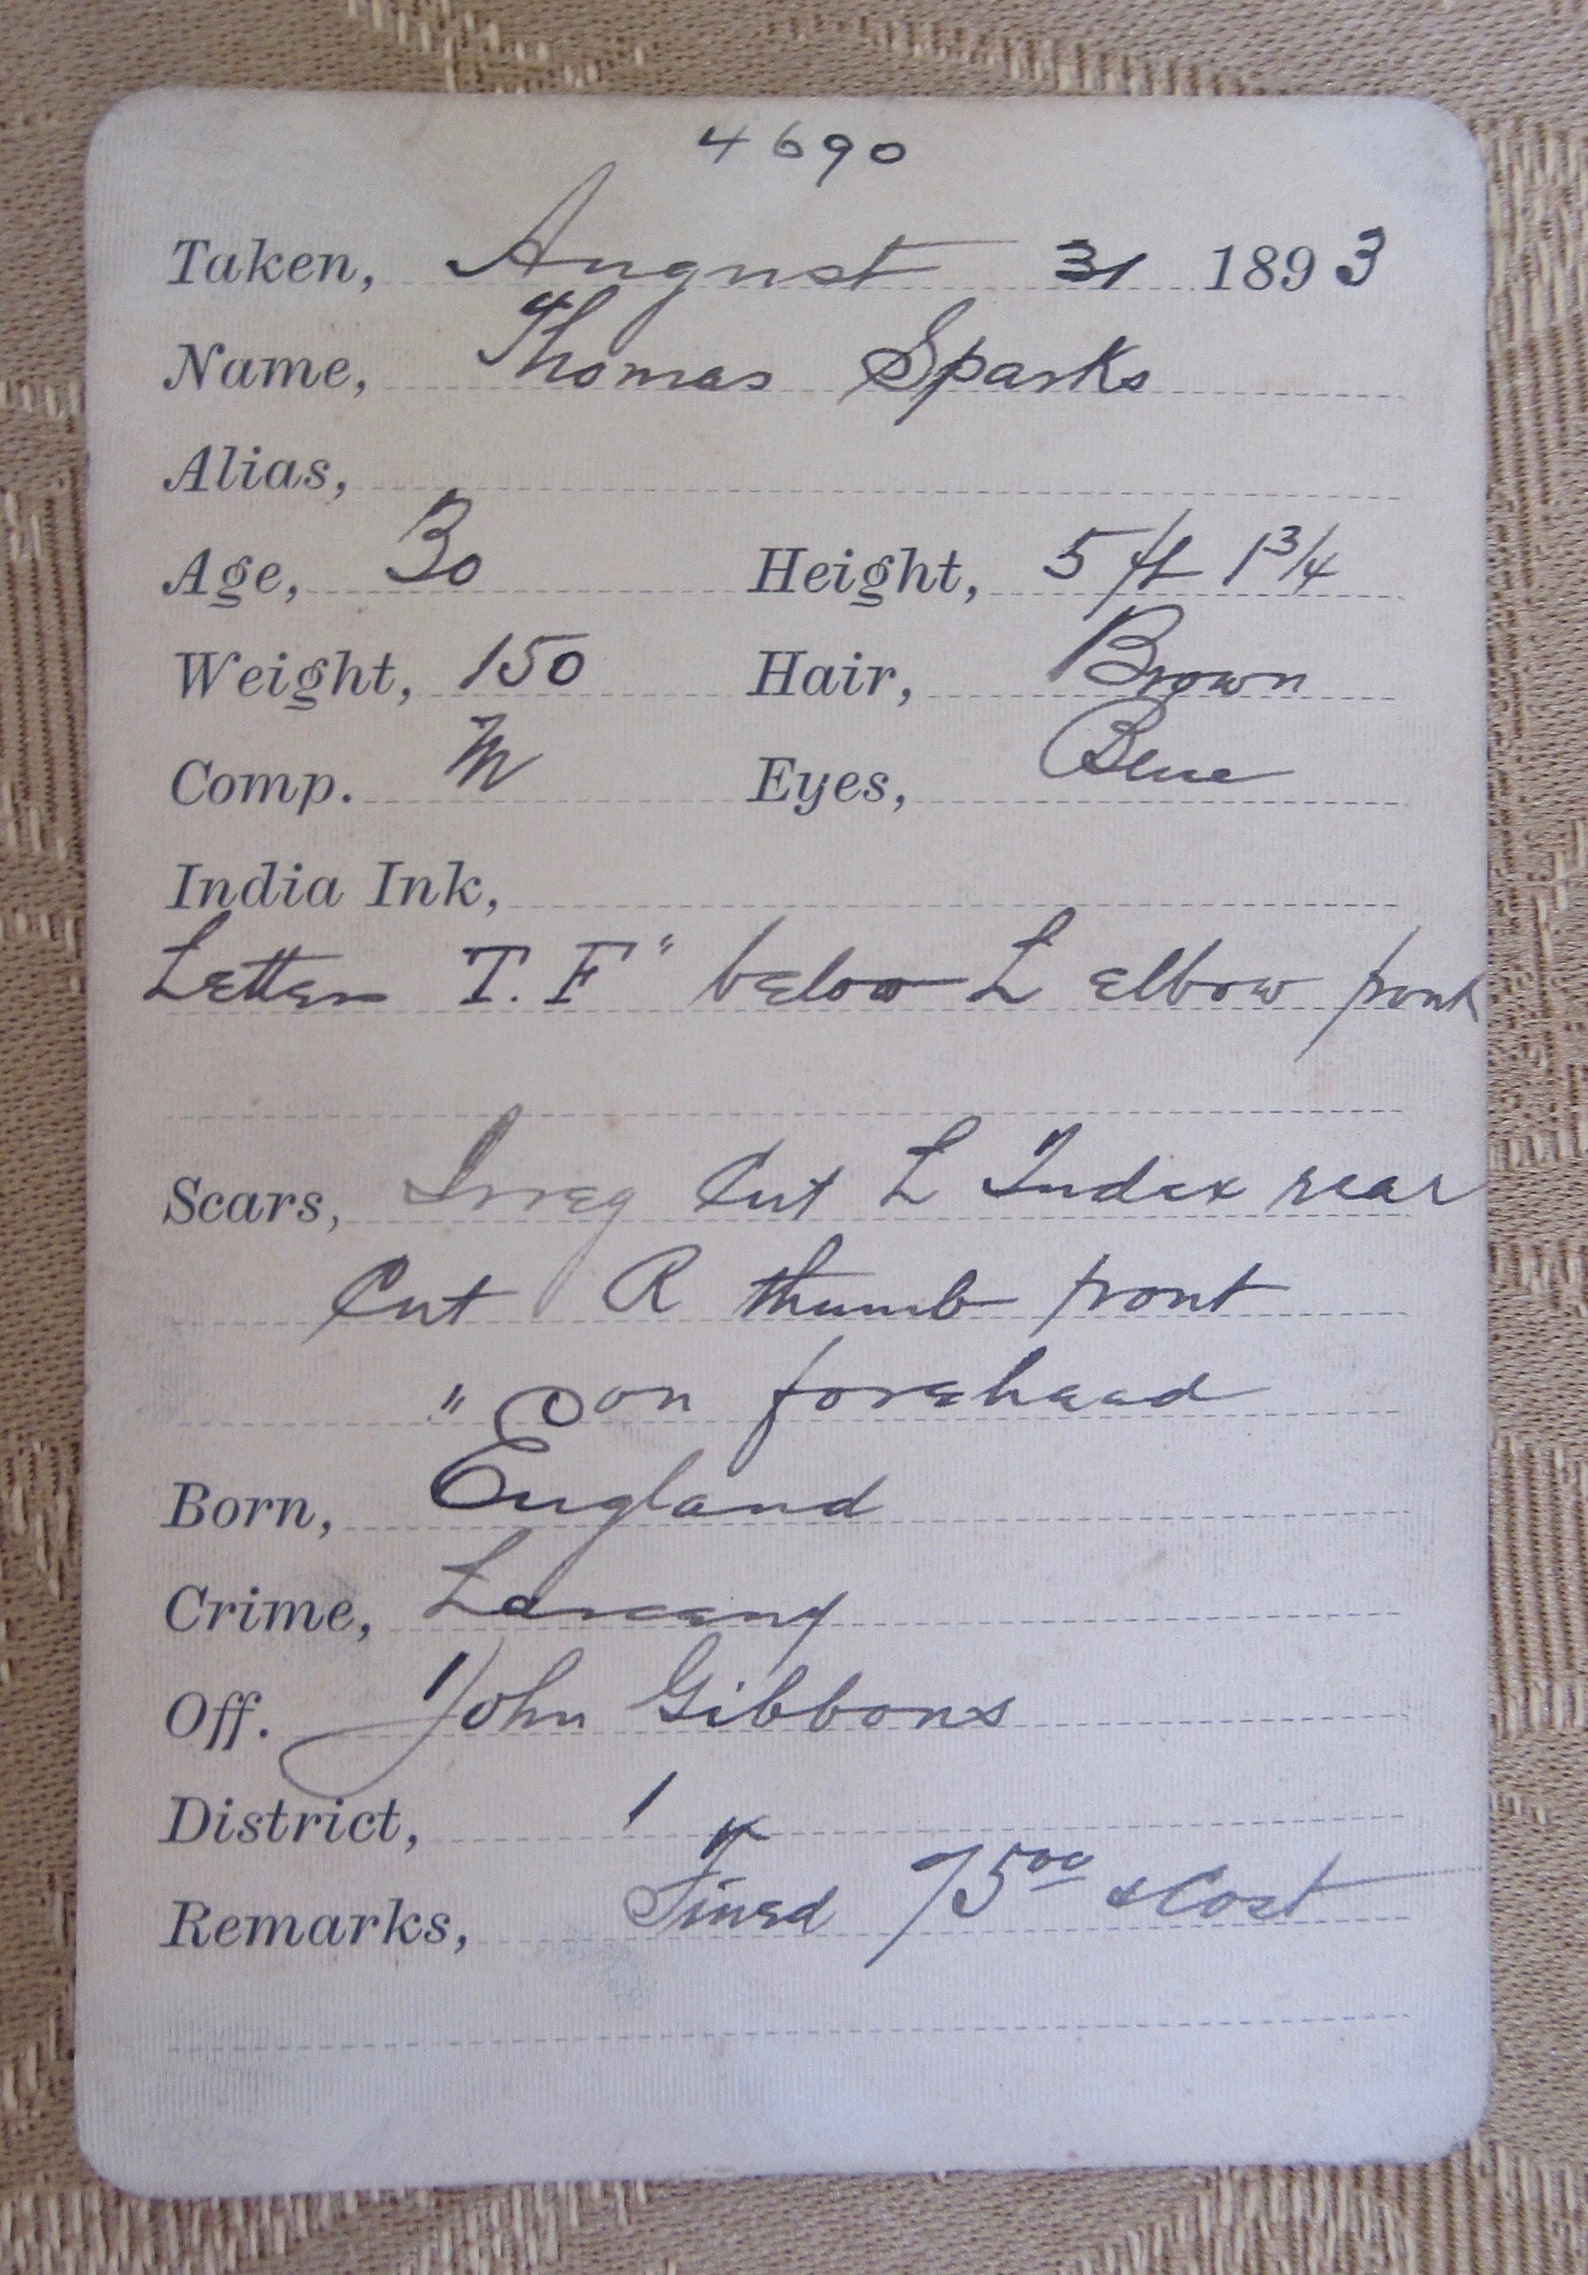 4690
Taken, August 31 1893
Name, Thomas Sparks
Alias,
Age, 30 Height, 5 ft 1 3/4
Weight, 150 Hair, Brown
Comp. M Eyes, Blue
India Ink,
Letters T. F" below L elbow front
Scars, Irreg Cut L Index rear
Cut R thumb front
" on forehead
Born, England
Crime, Larceny
Off. John Gibbons
District, 1
Remarks, Fined 75 00 & Cost